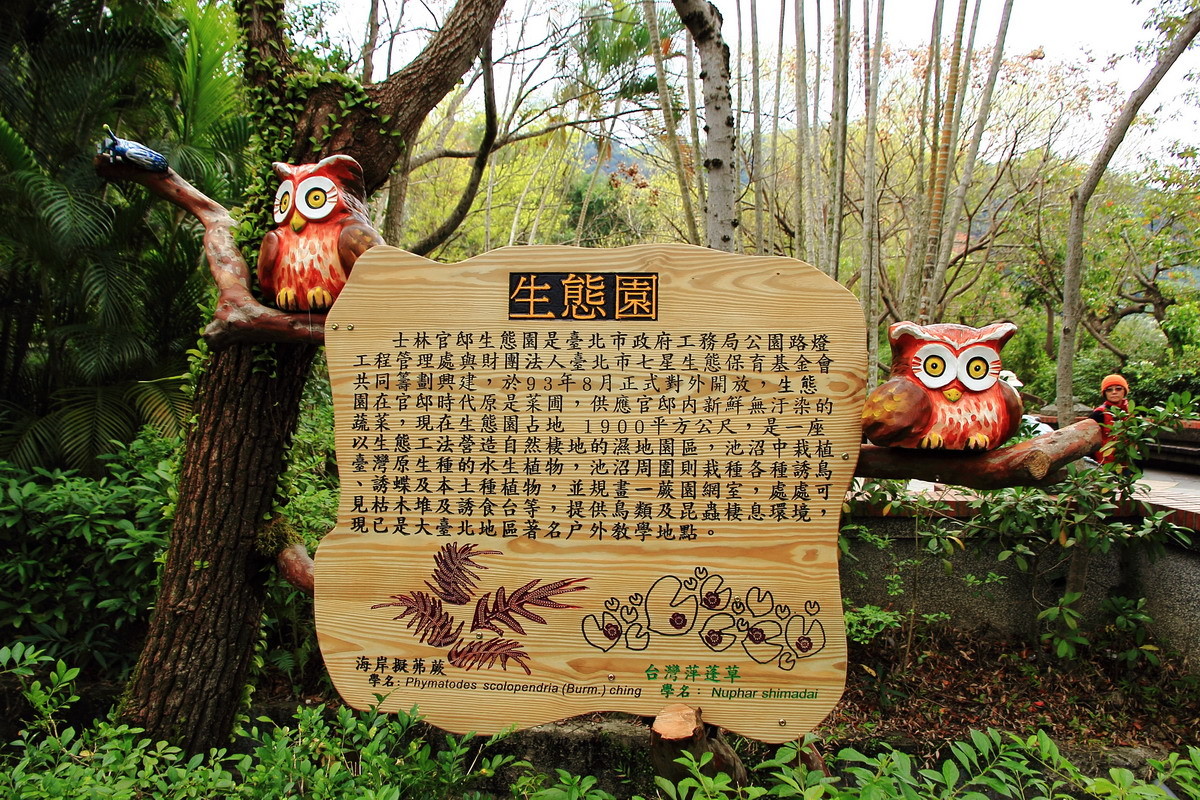 生態園
士林官邸生態園是臺北市政府工務局公園路燈
工程管理處與財團法人臺北市七星生態保育基金會
共同籌劃興建，於93年8月正式對外開放，生態
園在官邸時代原是菜圃，供應官邸內新鮮無汙染的
蔬菜，現在生態園占地 1900平方公尺，是一座
以生態工法營造自然棲地的濕地園區，池沼中栽植
臺灣原生種的水生植物，池沼周圍則栽種各種誘鳥
、誘蝶及本土種植物，並規畫一蕨園網室，處處可
見枯木堆及誘食台等，提供鳥類及昆蟲棲息環境，
現已是大臺北地區著名戶外教學地點。
海岸擬茀蕨
學名: Phymatodes scolopendria (Burm.) ching
台灣萍蓬草
學名： Nuphar shimadai